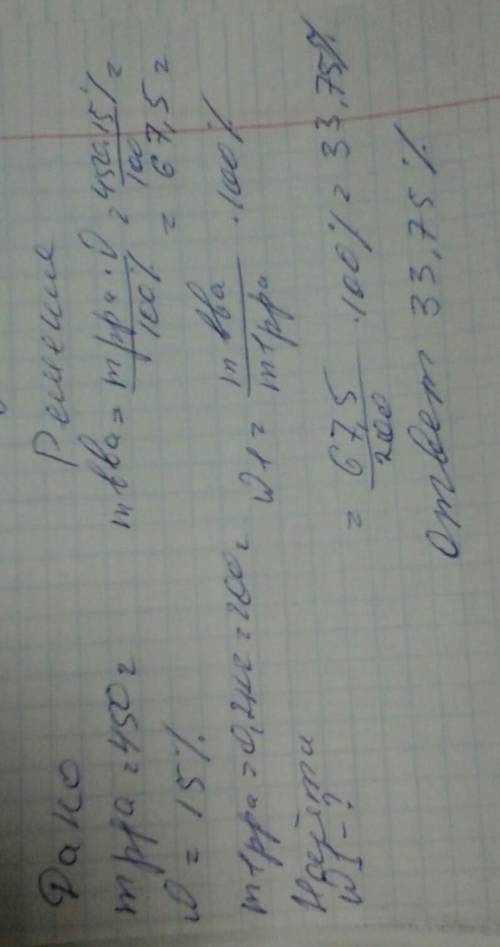 Дано
m рра = 450 г
ω = 15 %
m1рра = 0,2 кг = 200 г
Найти
ω1 - ?
Решение
m вва = m рра · ω / 100% = 450 · 15% / 100 =
= 67,5 г
ω1 = m вва / m1рра · 100%
= 67,5 / 200 · 100% = 33,75%
Ответ 33,75 %